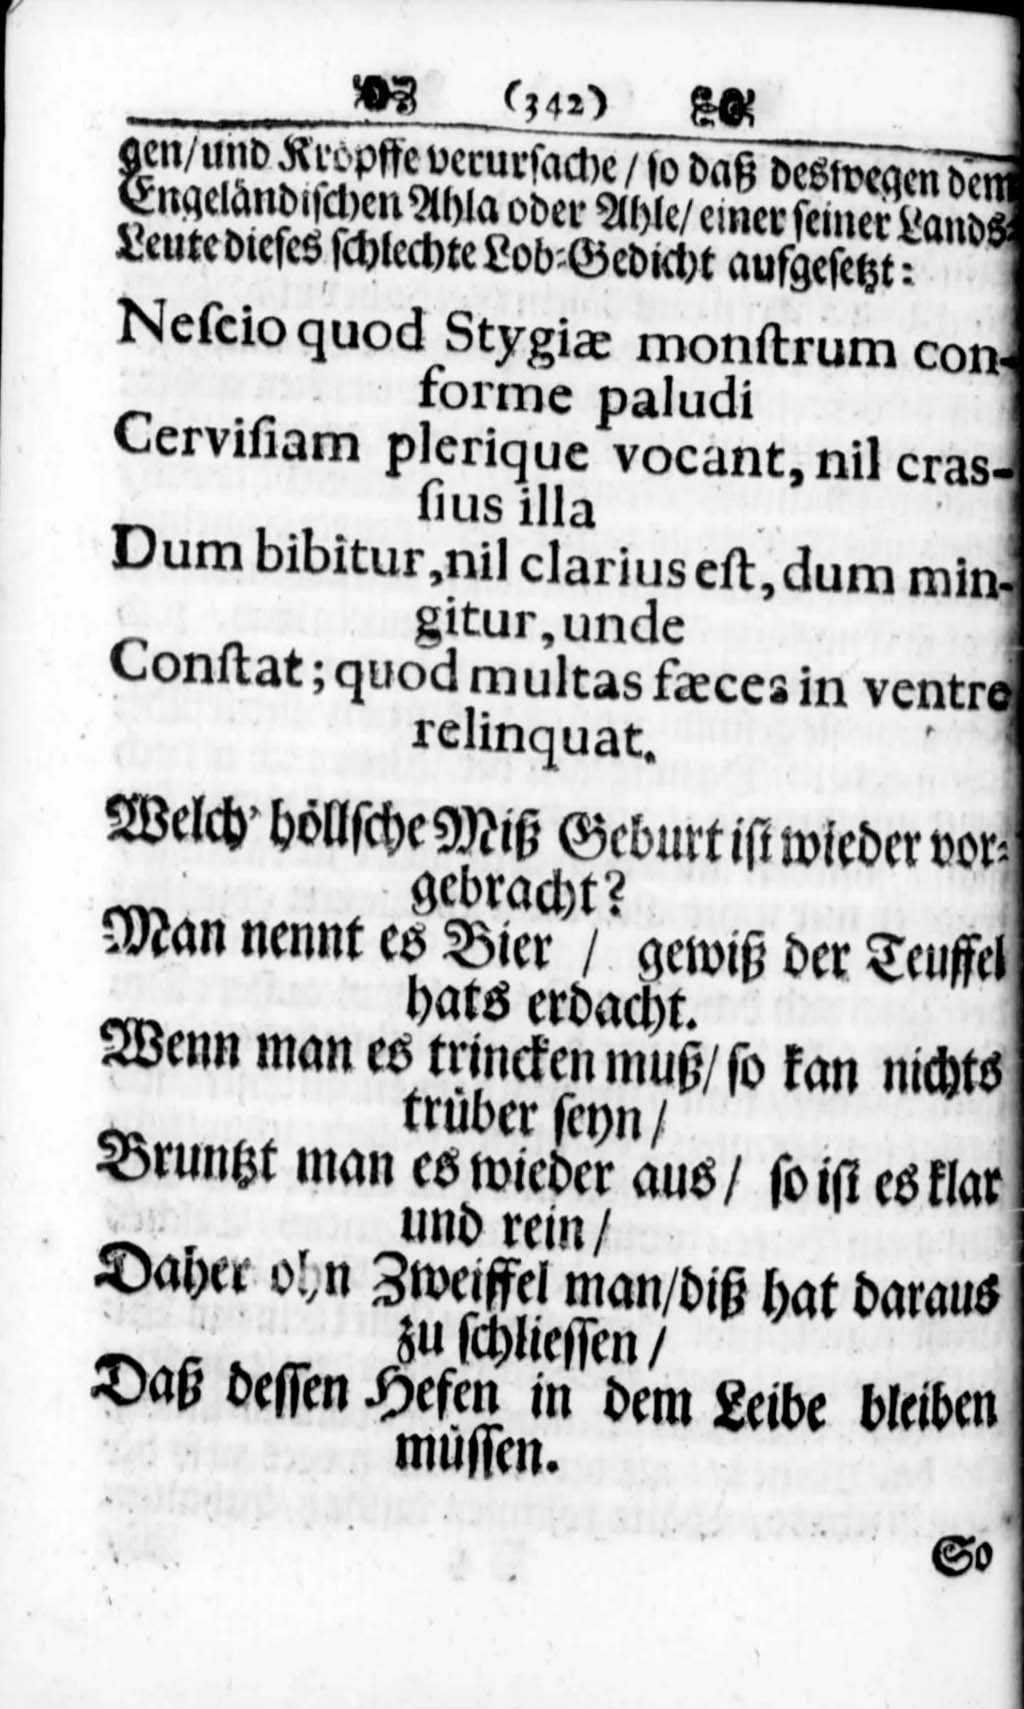 (342)
gen/und Kröpffe verursache / so daß deswegen dem
Engeländischen Ahla oder Ahle/ einer seiner Lands-
Leute dieses schlechte Lob-Gedicht aufgesetzt:
Neſcio quod Stygiæ monſtrum con-
forme paludi
Cerviſiam plerique vocant, nil cras-
ſius illa
Dum bibitur, nil clarius eſt, dum min-
gitur, unde
Conſtat; quod multas fæces in ventre
relinquat.
Welch' höllſche Miß Geburt iſt wieder vor-
gebracht?
Man nennt es Bier / gewiß der Teuffel
hats erdacht.
Wenn man es trincken muß/ ſo kan nichts
trüber ſeyn /
Bruntzt man es wieder aus / ſo iſt es klar
und rein /
Daher ohn Zweiffel man/diß hat daraus
zu ſchlieſſen /
Daß deſſen Hefen in dem Leibe bleiben
müſſen.
So